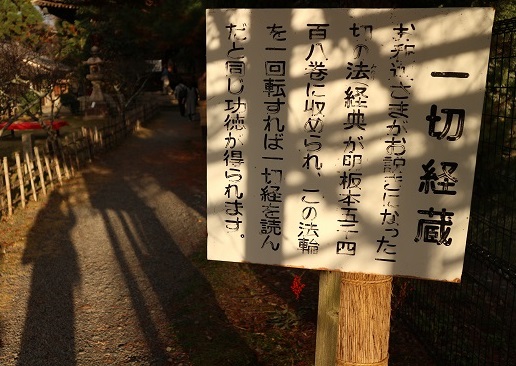 一切経蔵
お釈迦さまがお説きになった一
切の法(経典が印板本五千四
百八巻に収められ、この法輪
を一回転すれば一切経を読ん
だと同じ功徳が得られます。